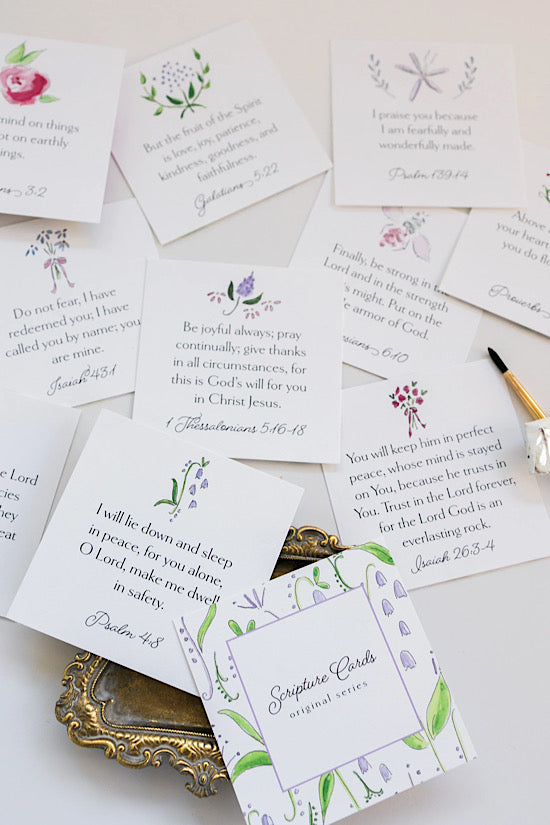 mind on things
ot on earthly
ngs.
3:2
But the fruit of the Spirit
is love, joy, patience,
kindness, goodness, and
faithfulness.
Galatians 5:22
I praise you because
I am fearfully and
wonderfully made.
Psalm 139:14
Do not fear, I have
redeemed you; I have
called you by name; you
are mine.
Isaiah 43:1
Be joyful always; pray
continually; give thanks
in all circumstances, for
this is God's will for you
in Christ Jesus.
1 Thessalonians 5:16-18
Finally, be strong in t
Lord and in the strength
s might. Put on the
le armor of God.
6:10
Above
your hear
you do fl
Proverbs
he Lord
cies
They
eat
I will lie down and sleep
in peace, for you alone,
O Lord, make me dwell
in safety.
Psalm 4:8
You will keep him in perfect
peace, whose mind is stayed
on You, because he trusts in
You. Trust in the Lord forever,
for the Lord God is an
everlasting rock.
Isaiah 26:3-4
Scripture Cards
original series